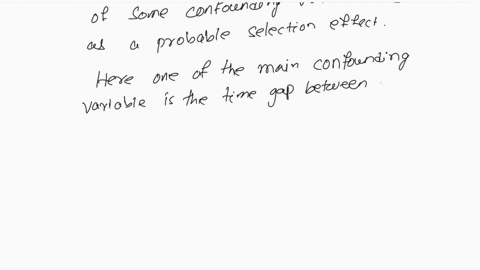 of some confounding
as a probable selection effect.
Here one of the main confounding
variable is the time gap between